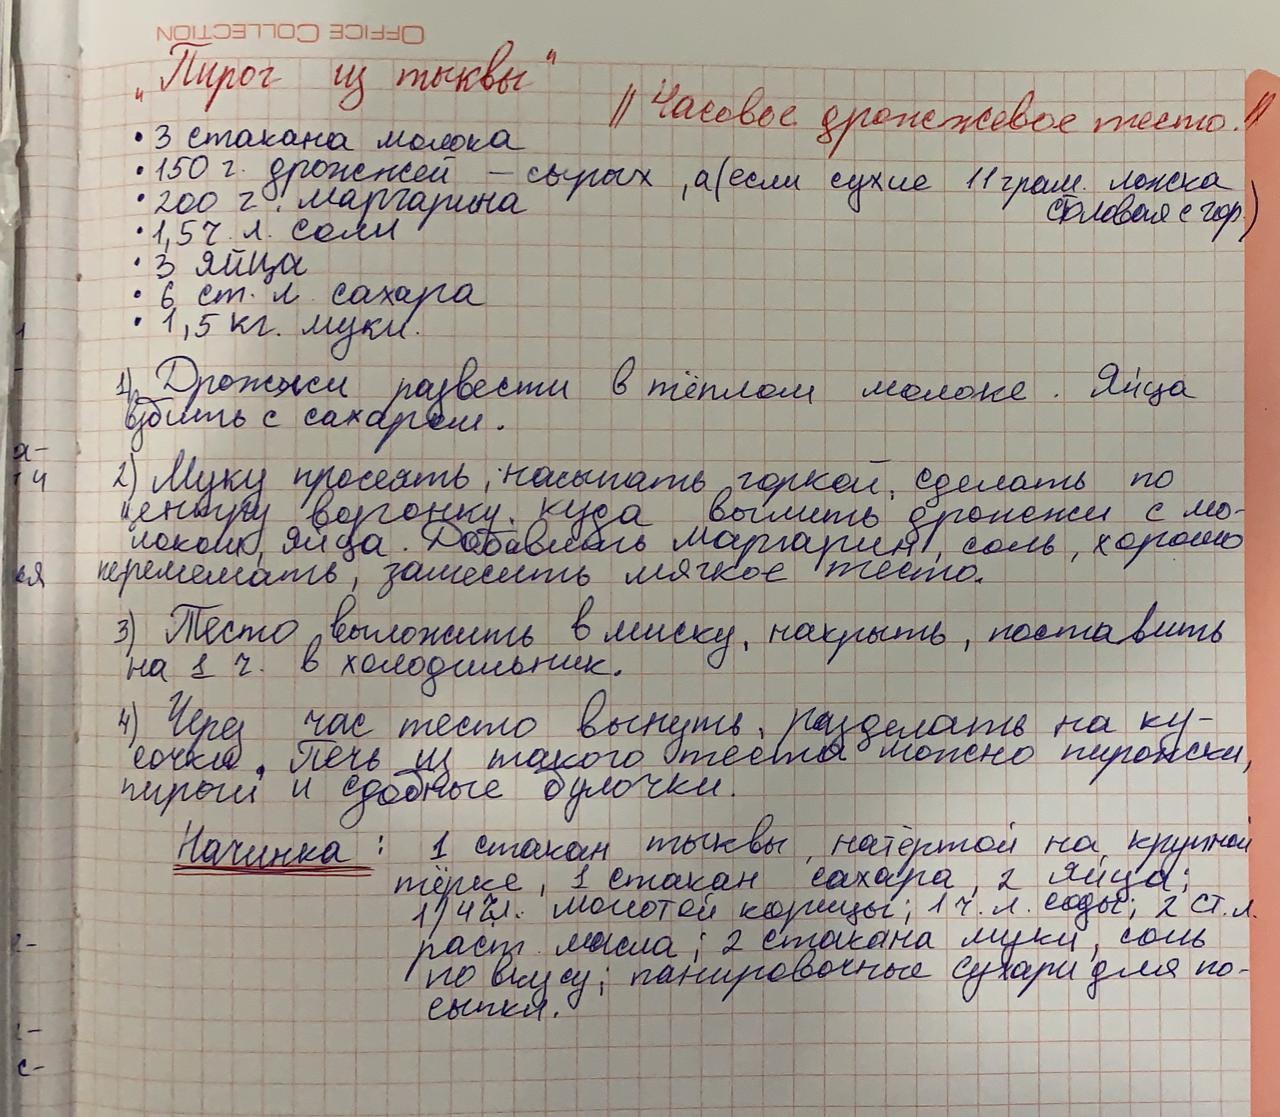 OFFICE COLLECTION
„Пирог из тыквы"
// Часовое дрожжевое тесто. //
• 3 стакана молока
• 150 г. дрожжей – сырых, а (если сухие 11 грам. ложка
столовая с гор.)
• 200 г. маргарина
• 1,5 ч. л. соли
• 3 яйца
• 6 ст. л. сахара
• 1,5 кг. муки.
1) Дрожжи развести в тёплом молоке. Яйца
взбить с сахаром.
2) Муку просеять, насыпать горкой, сделать по
центру воронку, куда вылить дрожжи с мо-
локом, яйца. Добавлять маргарин, соль, хорошо
перемешать, замесить мягкое тесто.
3) Тесто выложить в миску, накрыть, поставить
на 1 ч. в холодильник.
4) Через час тесто вынуть, разделать на ку-
сочки. Печь из такого теста можно пирожки,
пироги и сдобные булочки.
Начинка: 1 стакан тыквы, натёртой на крупной
тёрке, 1 стакан сахара, 2 яйца;
1/4 ч.л. молотой корицы; 1 ч. л. соды; 2 ст. л.
раст. масла; 2 стакана муки, соль
по вкусу; панировочные сухари для по-
сыпки.